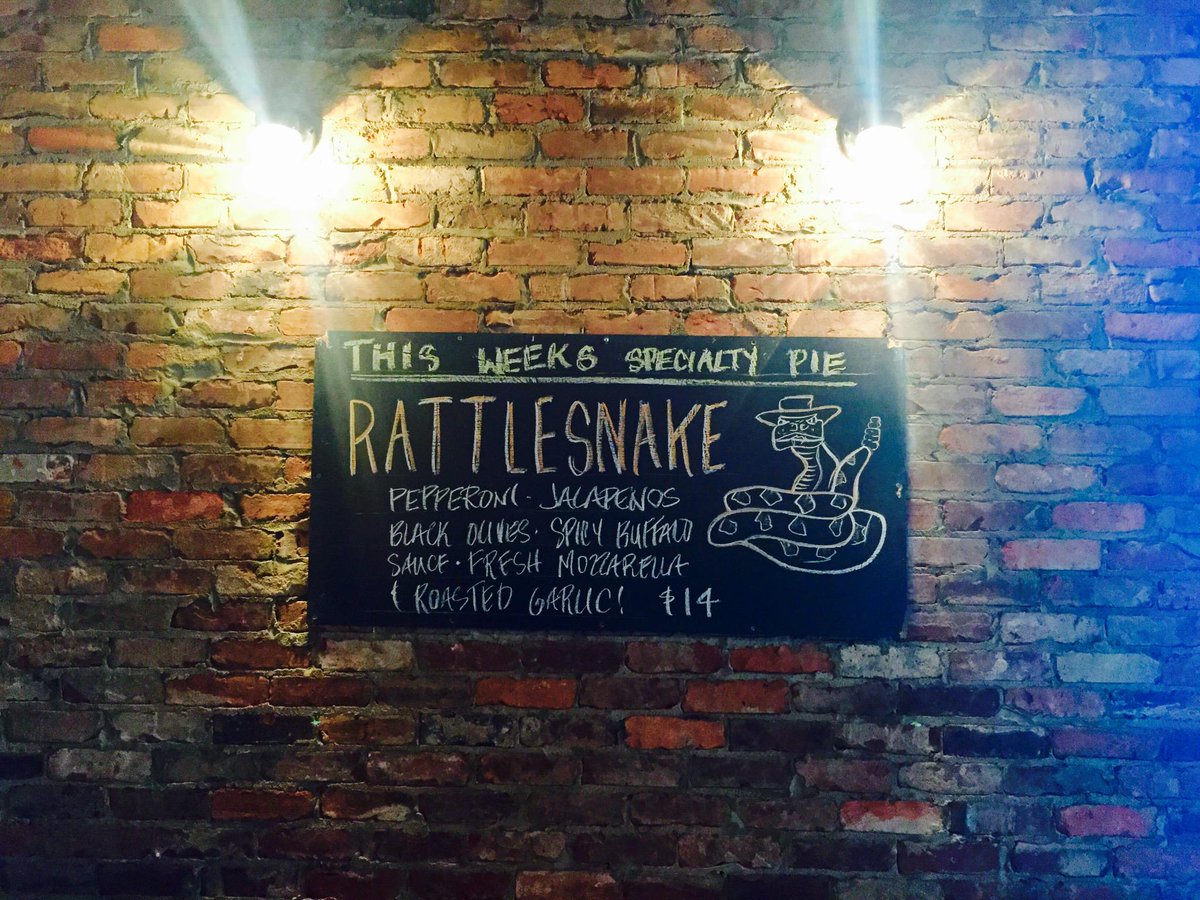 THIS WEEKS SPECIALTY PIE
RATTLESNAKE
PEPPERONI · JALAPENOS
BLACK OLIVES · SPICY BUFFALO
SAUCE · FRESH MOZZARELLA
& ROASTED GARLIC! $14